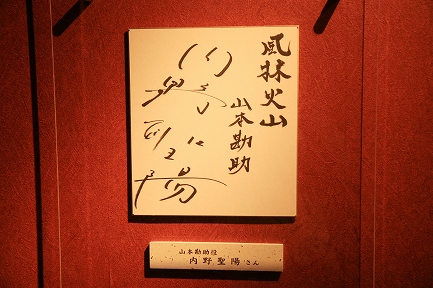 風林火山
山本勘助
内野聖陽
山本勘助役
内野聖陽さん